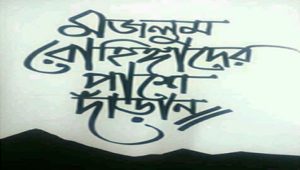 মজলুম
রোহিঙ্গাদের
পাশে
দাঁড়ান